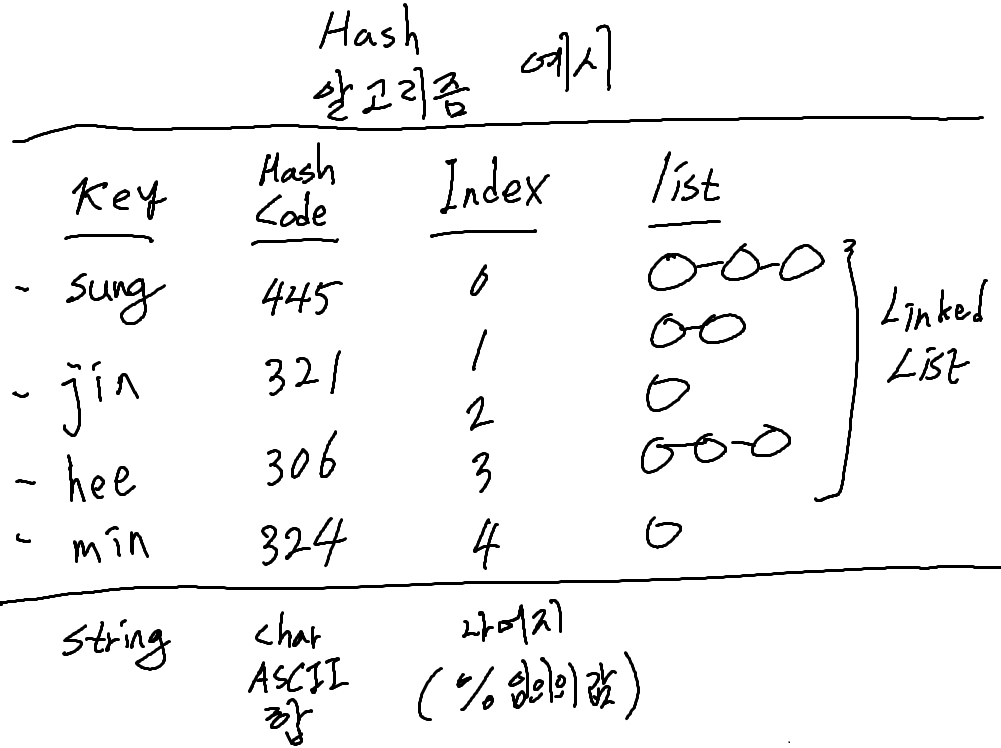 Hash
알고리즘 예시
Key Hash Code Index list
- sung 445 0
1
- jin 321 2
- hee 306 3
- min 324 4
Linked
List
string char 나머지
ASCII (% 임의의 값)
합